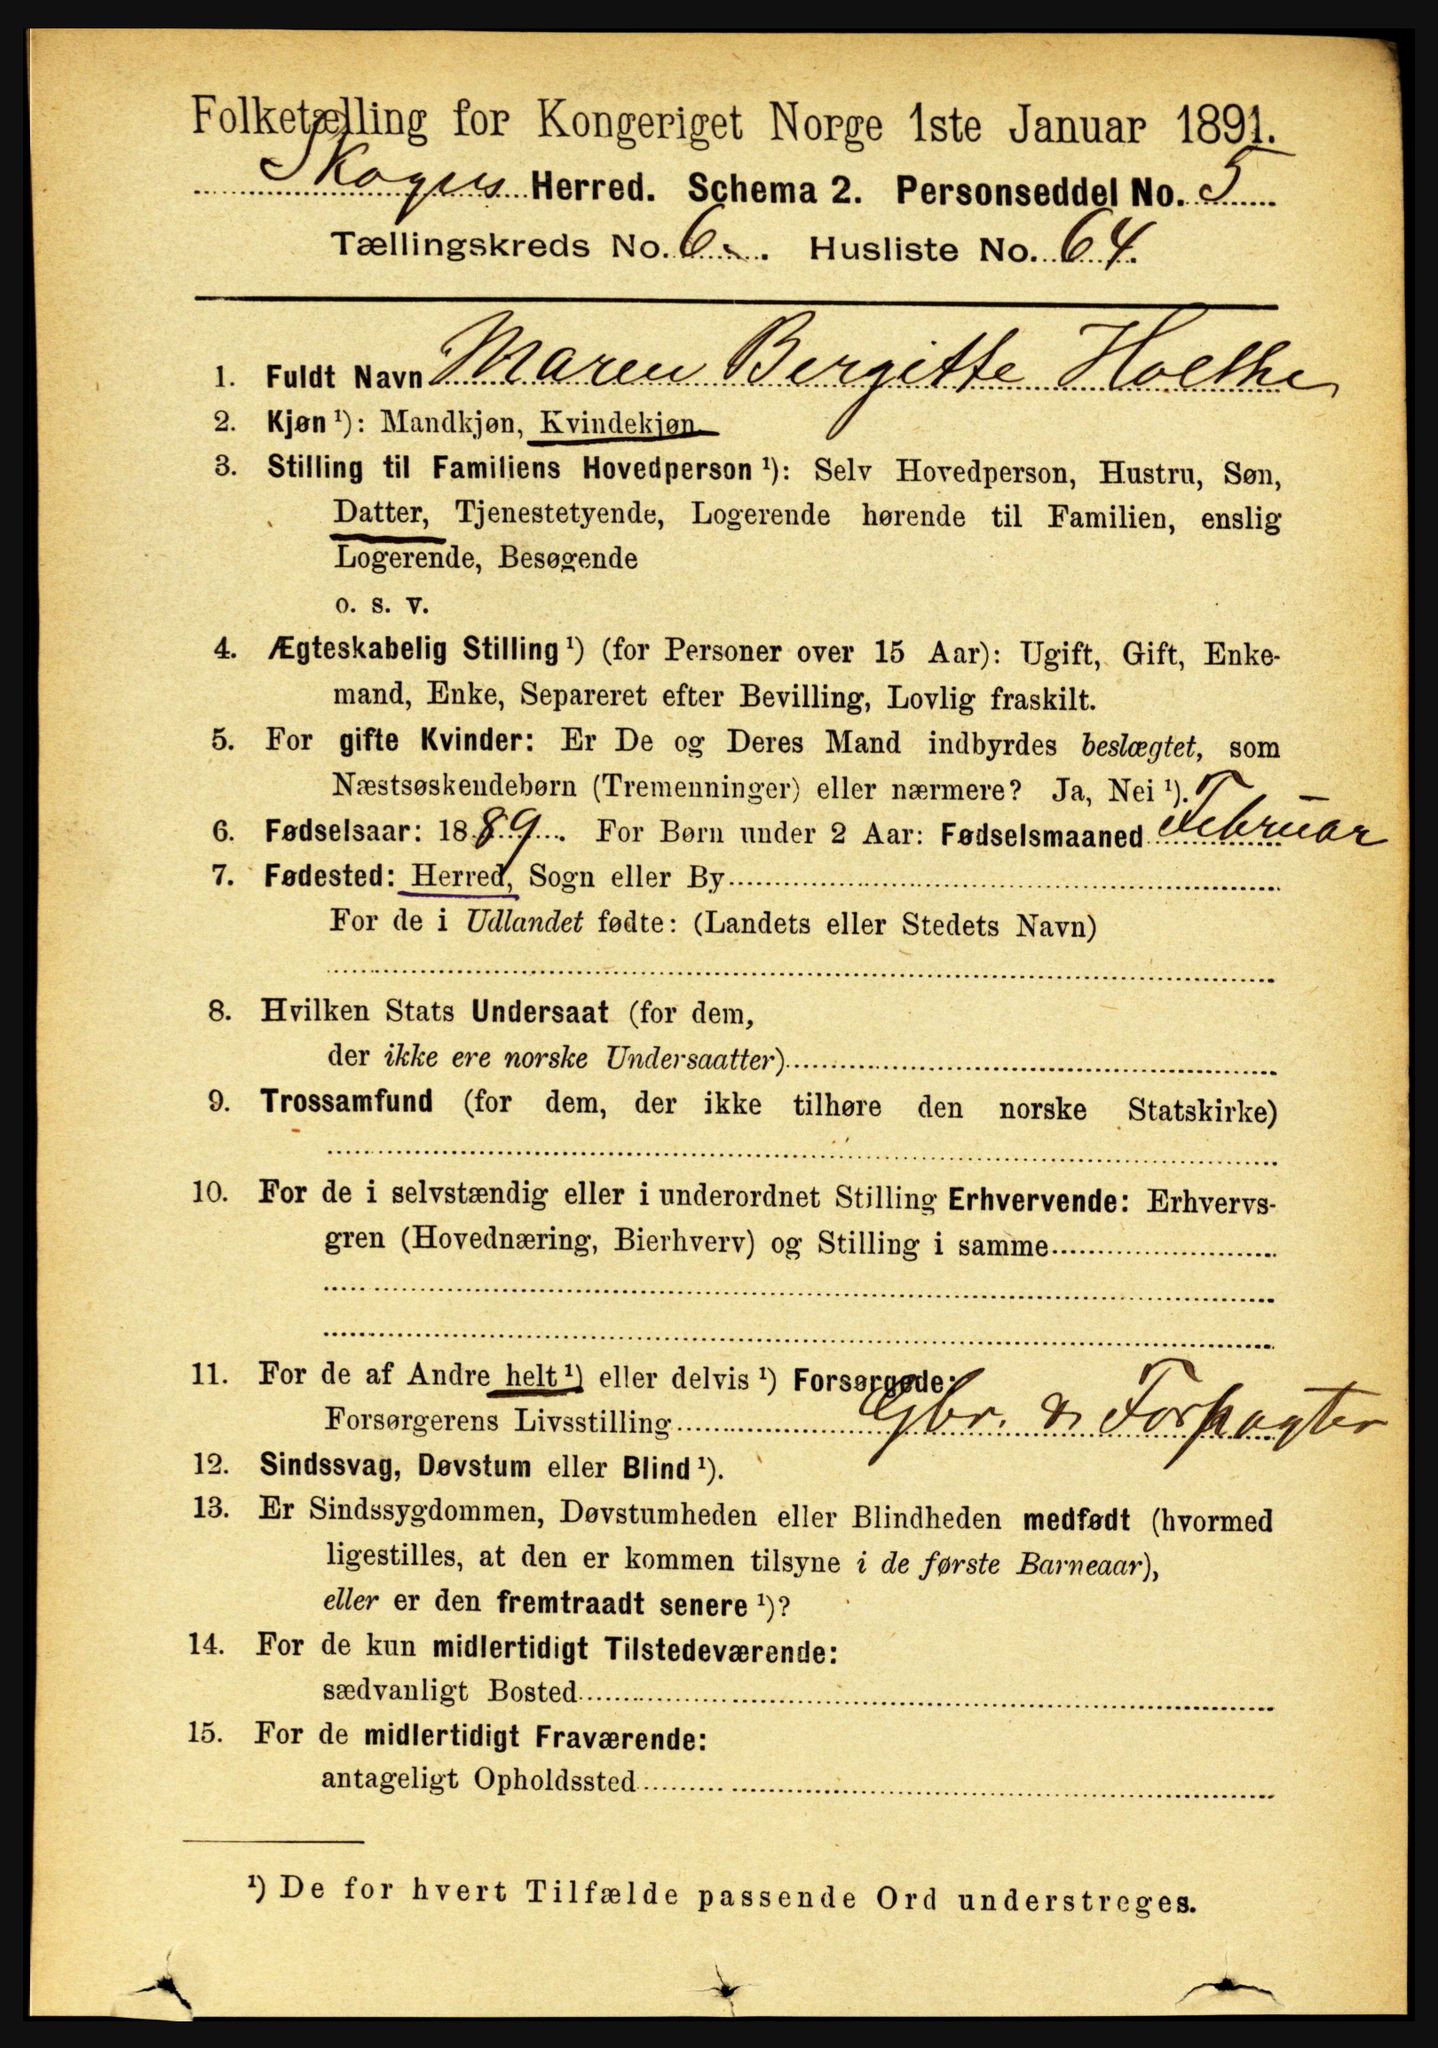 Folketælling for Kongeriget Norge 1ste Januar 1891.
Skoger Herred. Schema 2. Personseddel No. 5
Tællingskreds No. 6. Husliste No. 64.
1. Fuldt Navn Maren Bergitte Holthe
2. Kjøn ¹): Mandkjøn, Kvindekjøn
3. Stilling til Familiens Hovedperson ¹): Selv Hovedperson, Hustru, Søn,
Datter, Tjenestetyende, Logerende hørende til Familien, enslig
Logerende, Besøgende
o. s. v.
4. Ægteskabelig Stilling ¹) (for Personer over 15 Aar): Ugift, Gift, Enke-
mand, Enke, Separeret efter Bevilling, Lovlig fraskilt.
5. For gifte Kvinder: Er De og Deres Mand indbyrdes beslægtet, som
Næstsøskendebørn (Tremenninger) eller nærmere? Ja, Nei ¹).
6. Fødselsaar: 1889. For Børn under 2 Aar: Fødselsmaaned Februar
7. Fødested: Herred, Sogn eller By
For de i Udlandet fødte: (Landets eller Stedets Navn)
8. Hvilken Stats Undersaat (for dem,
der ikke ere norske Undersaatter)
9. Trossamfund (for dem, der ikke tilhøre den norske Statskirke)
10. For de i selvstændig eller i underordnet Stilling Erhvervende: Erhvervs-
gren (Hovednæring, Bierhverv) og Stilling i samme
11. For de af Andre helt ¹) eller delvis ¹) Forsørgede:
Forsørgerens Livsstilling Gbr. & Forpagter
12. Sindssvag, Døvstum eller Blind ¹).
13. Er Sindssygdommen, Døvstumheden eller Blindheden medfødt (hvormed
ligestilles, at den er kommen tilsyne i de første Barneaar),
eller er den fremtraadt senere ¹)?
14. For de kun midlertidigt Tilstedeværende:
sædvanligt Bosted
15. For de midlertidigt Fraværende:
antageligt Opholdssted
¹) De for hvert Tilfælde passende Ord understreges.